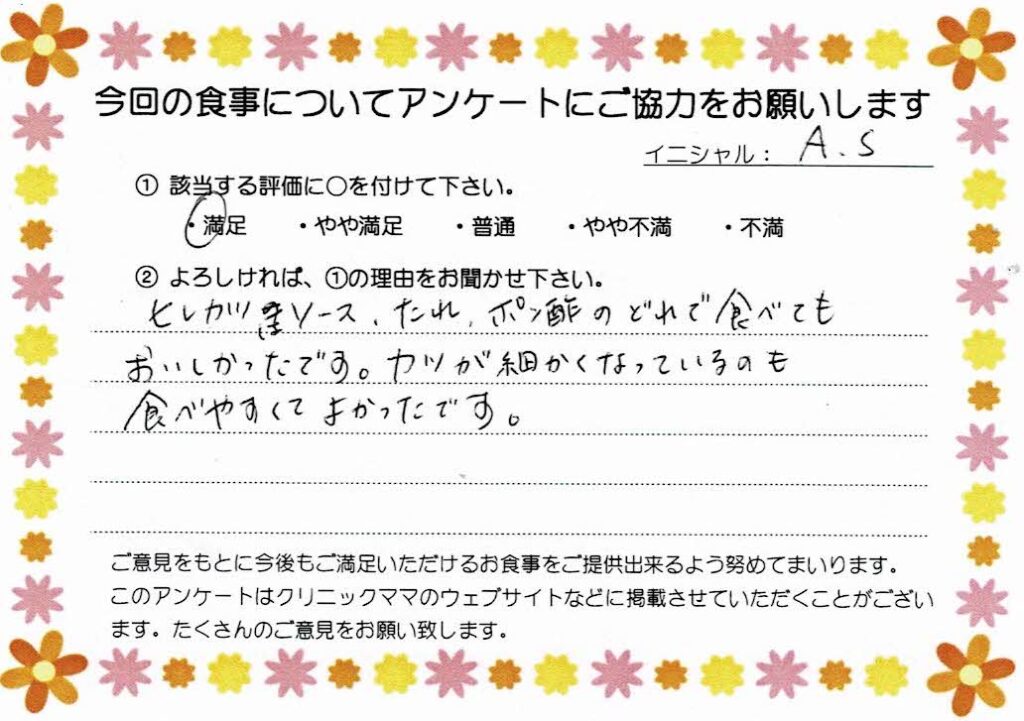 今回の食事についてアンケートにご協力をお願いします
イニシャル： A.S
① 該当する評価に○を付けて下さい。
・満足 ・やや満足 ・普通 ・やや不満 ・不満
② よろしければ、①の理由をお聞かせ下さい。
ヒレカツ ソース、たれ、ポン酢のどれで食べても
おいしかったです。カツが細かくなっているのも
食べやすくてよかったです。
ご意見をもとに今後もご満足いただけるお食事をご提供出来るよう努めてまいります。
このアンケートはクリニックママのウェブサイトなどに掲載させていただくことがござい
ます。たくさんのご意見をお願い致します。